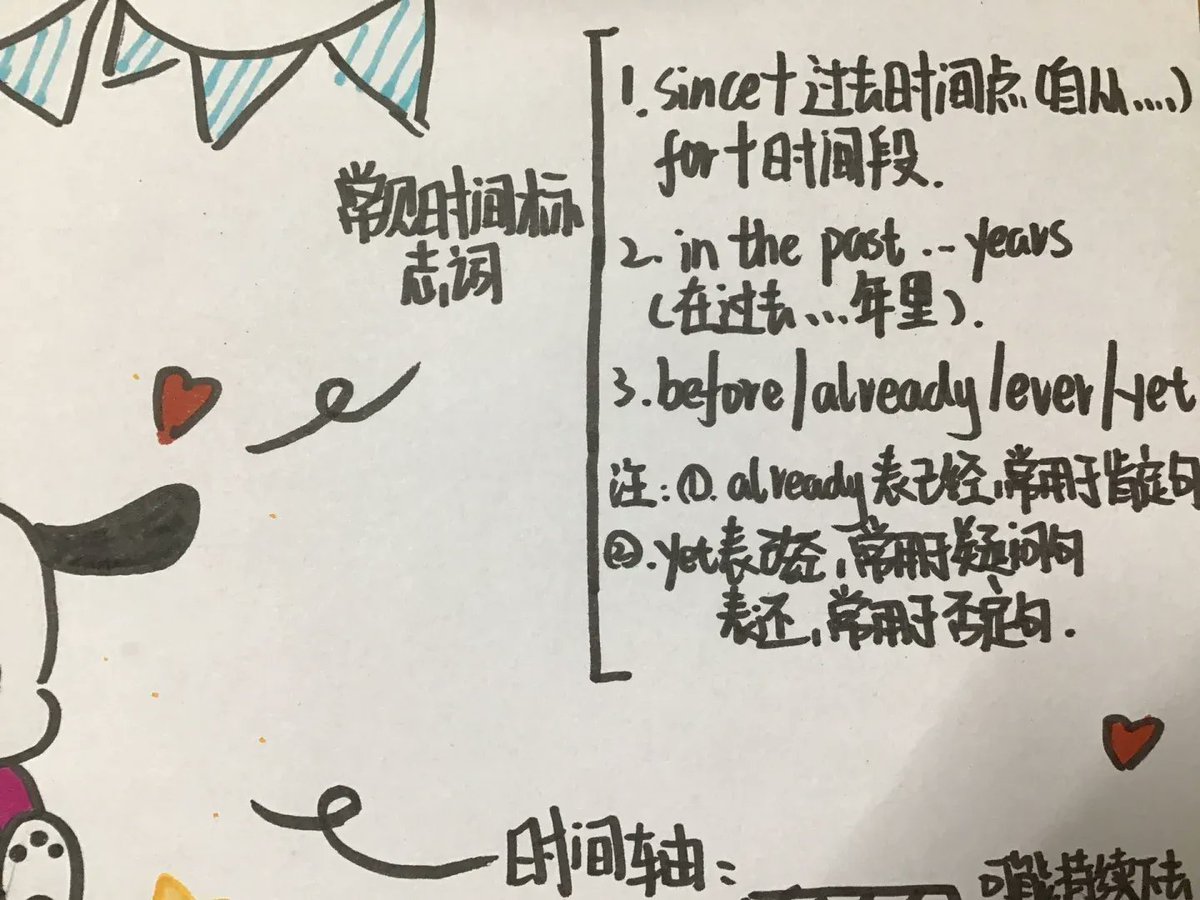 常见时间标
志词
1. since+过去时间点(自从....)
for+时间段.
2. in the past ... years
(在过去...年里).
3. before/already/ever/yet
注:①. already表已经,常用于肯定句
②. yet表已经,常用于疑问句
表还,常用于否定句.
时间轴:
可能持续下去